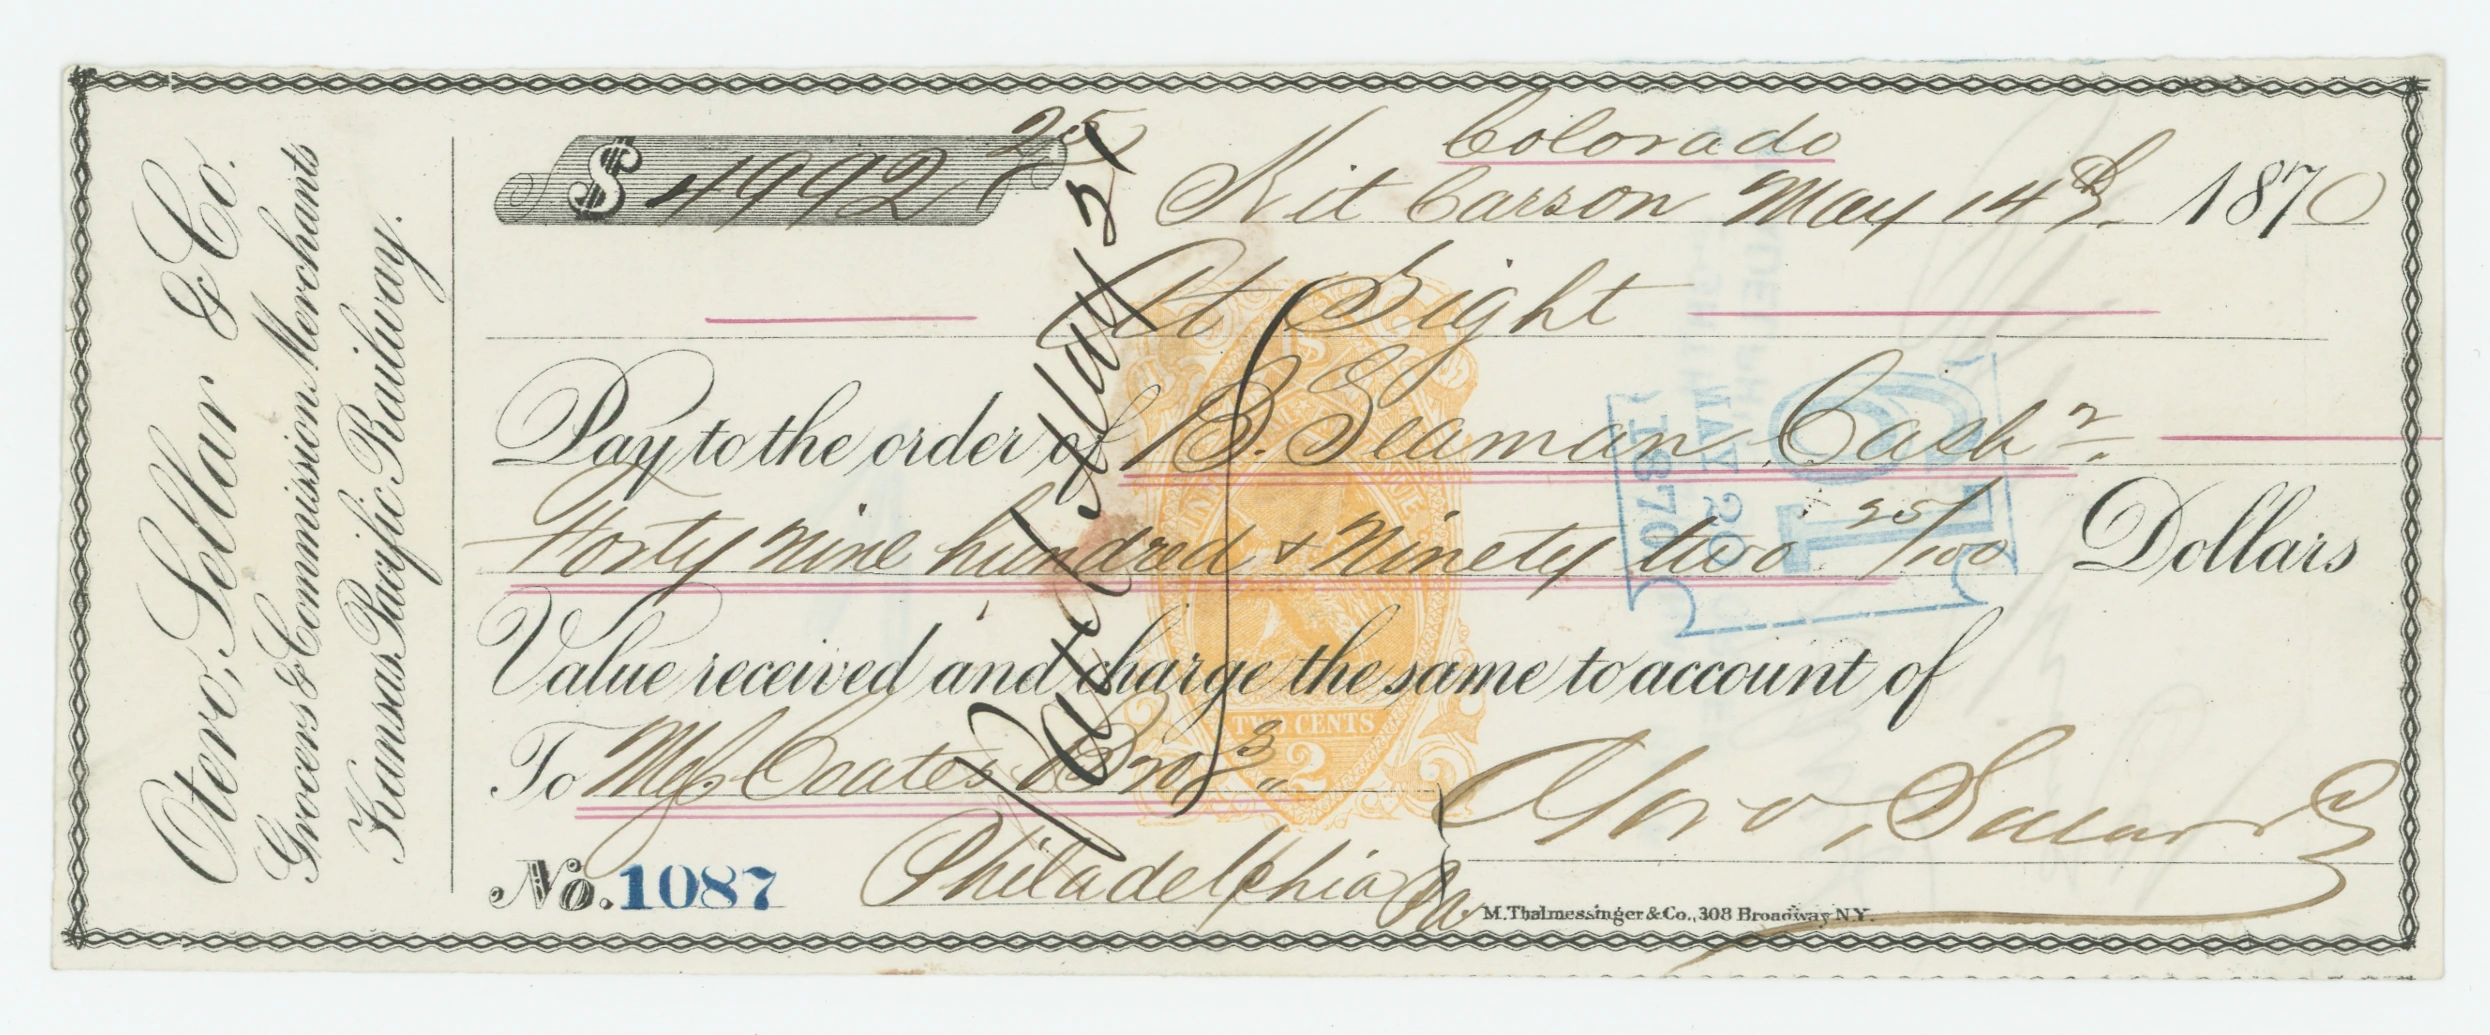 Otero, Sellar & Co.
Grocers & Commission Merchants
Kansas Pacific Railway.
$ 4992 25
Colorado
Kit Carson May 14th 1870
At Sight
Pay to the order of B. Seaman Cashr
Forty nine hundred & Ninety two 25/100 Dollars
Value received and charge the same to account of
To Mess Coates Bros
Philadelphia Pa.
Otero, Sellar & Co
No. 1087
M. Thalmessinger & Co., 308 Broadway N.Y.
Paid May 21
TWO CENTS
2
MAY 20
1870